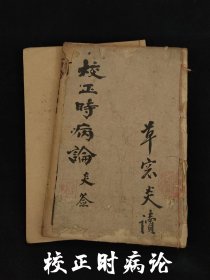 校正時病論
夹签
草窓夹讀
校正时病论